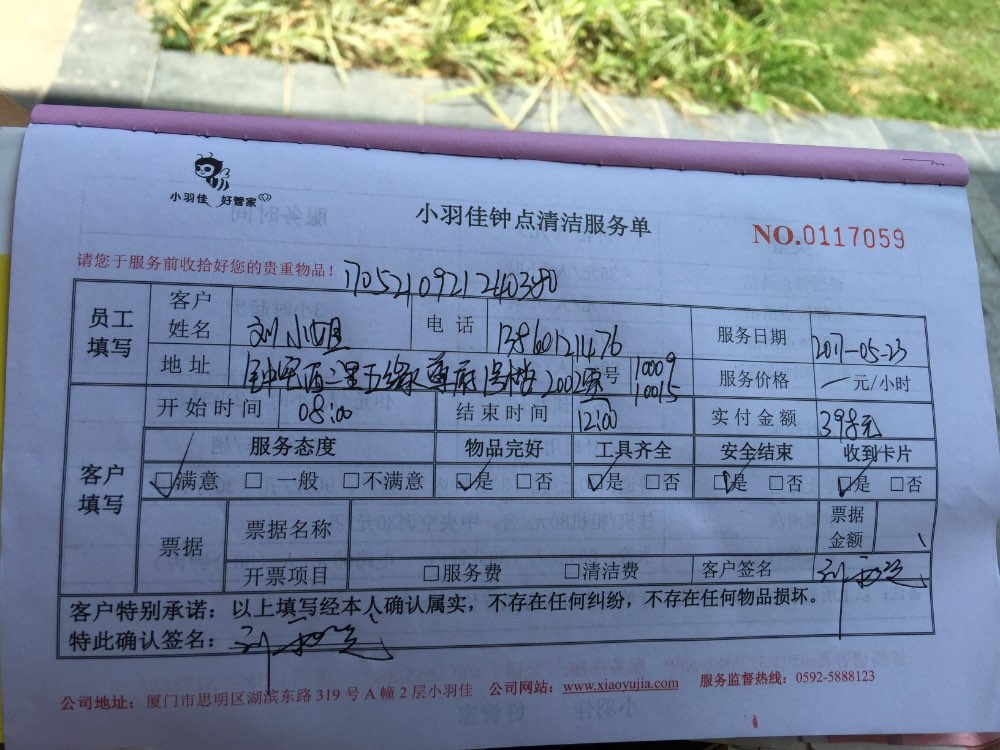 小羽佳 好管家
小羽佳钟点清洁服务单
NO.0117059
请您于服务前收拾好您的贵重物品！
1705210921240380
员工填写
客户姓名 刘小 电话 13860121476 服务日期 2017-05-23
地址 五缘尊府 2002 号 10009 10015 服务价格 一元/小时
客户填写
开始时间 08:00 结束时间 12:00 实付金额 398元
服务态度 物品完好 工具齐全 安全结束 收到卡片
□满意 □一般 □不满意 □是 □否 □是 □否 □是 □否 □是 □否
票据 票据名称 票据金额
开票项目 □服务费 □清洁费 客户签名
客户特别承诺：以上填写经本人确认属实，不存在任何纠纷，不存在任何物品损坏。
特此确认签名：
公司地址：厦门市思明区湖滨东路 319 号 A 幢 2 层小羽佳 公司网站：www.xiaoyujia.com 服务监督热线：0592-5888123